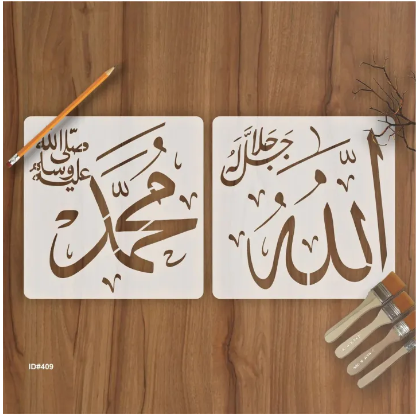 الله
جل جلاله
محمد
صلى الله
عليه وسلم
ID#409